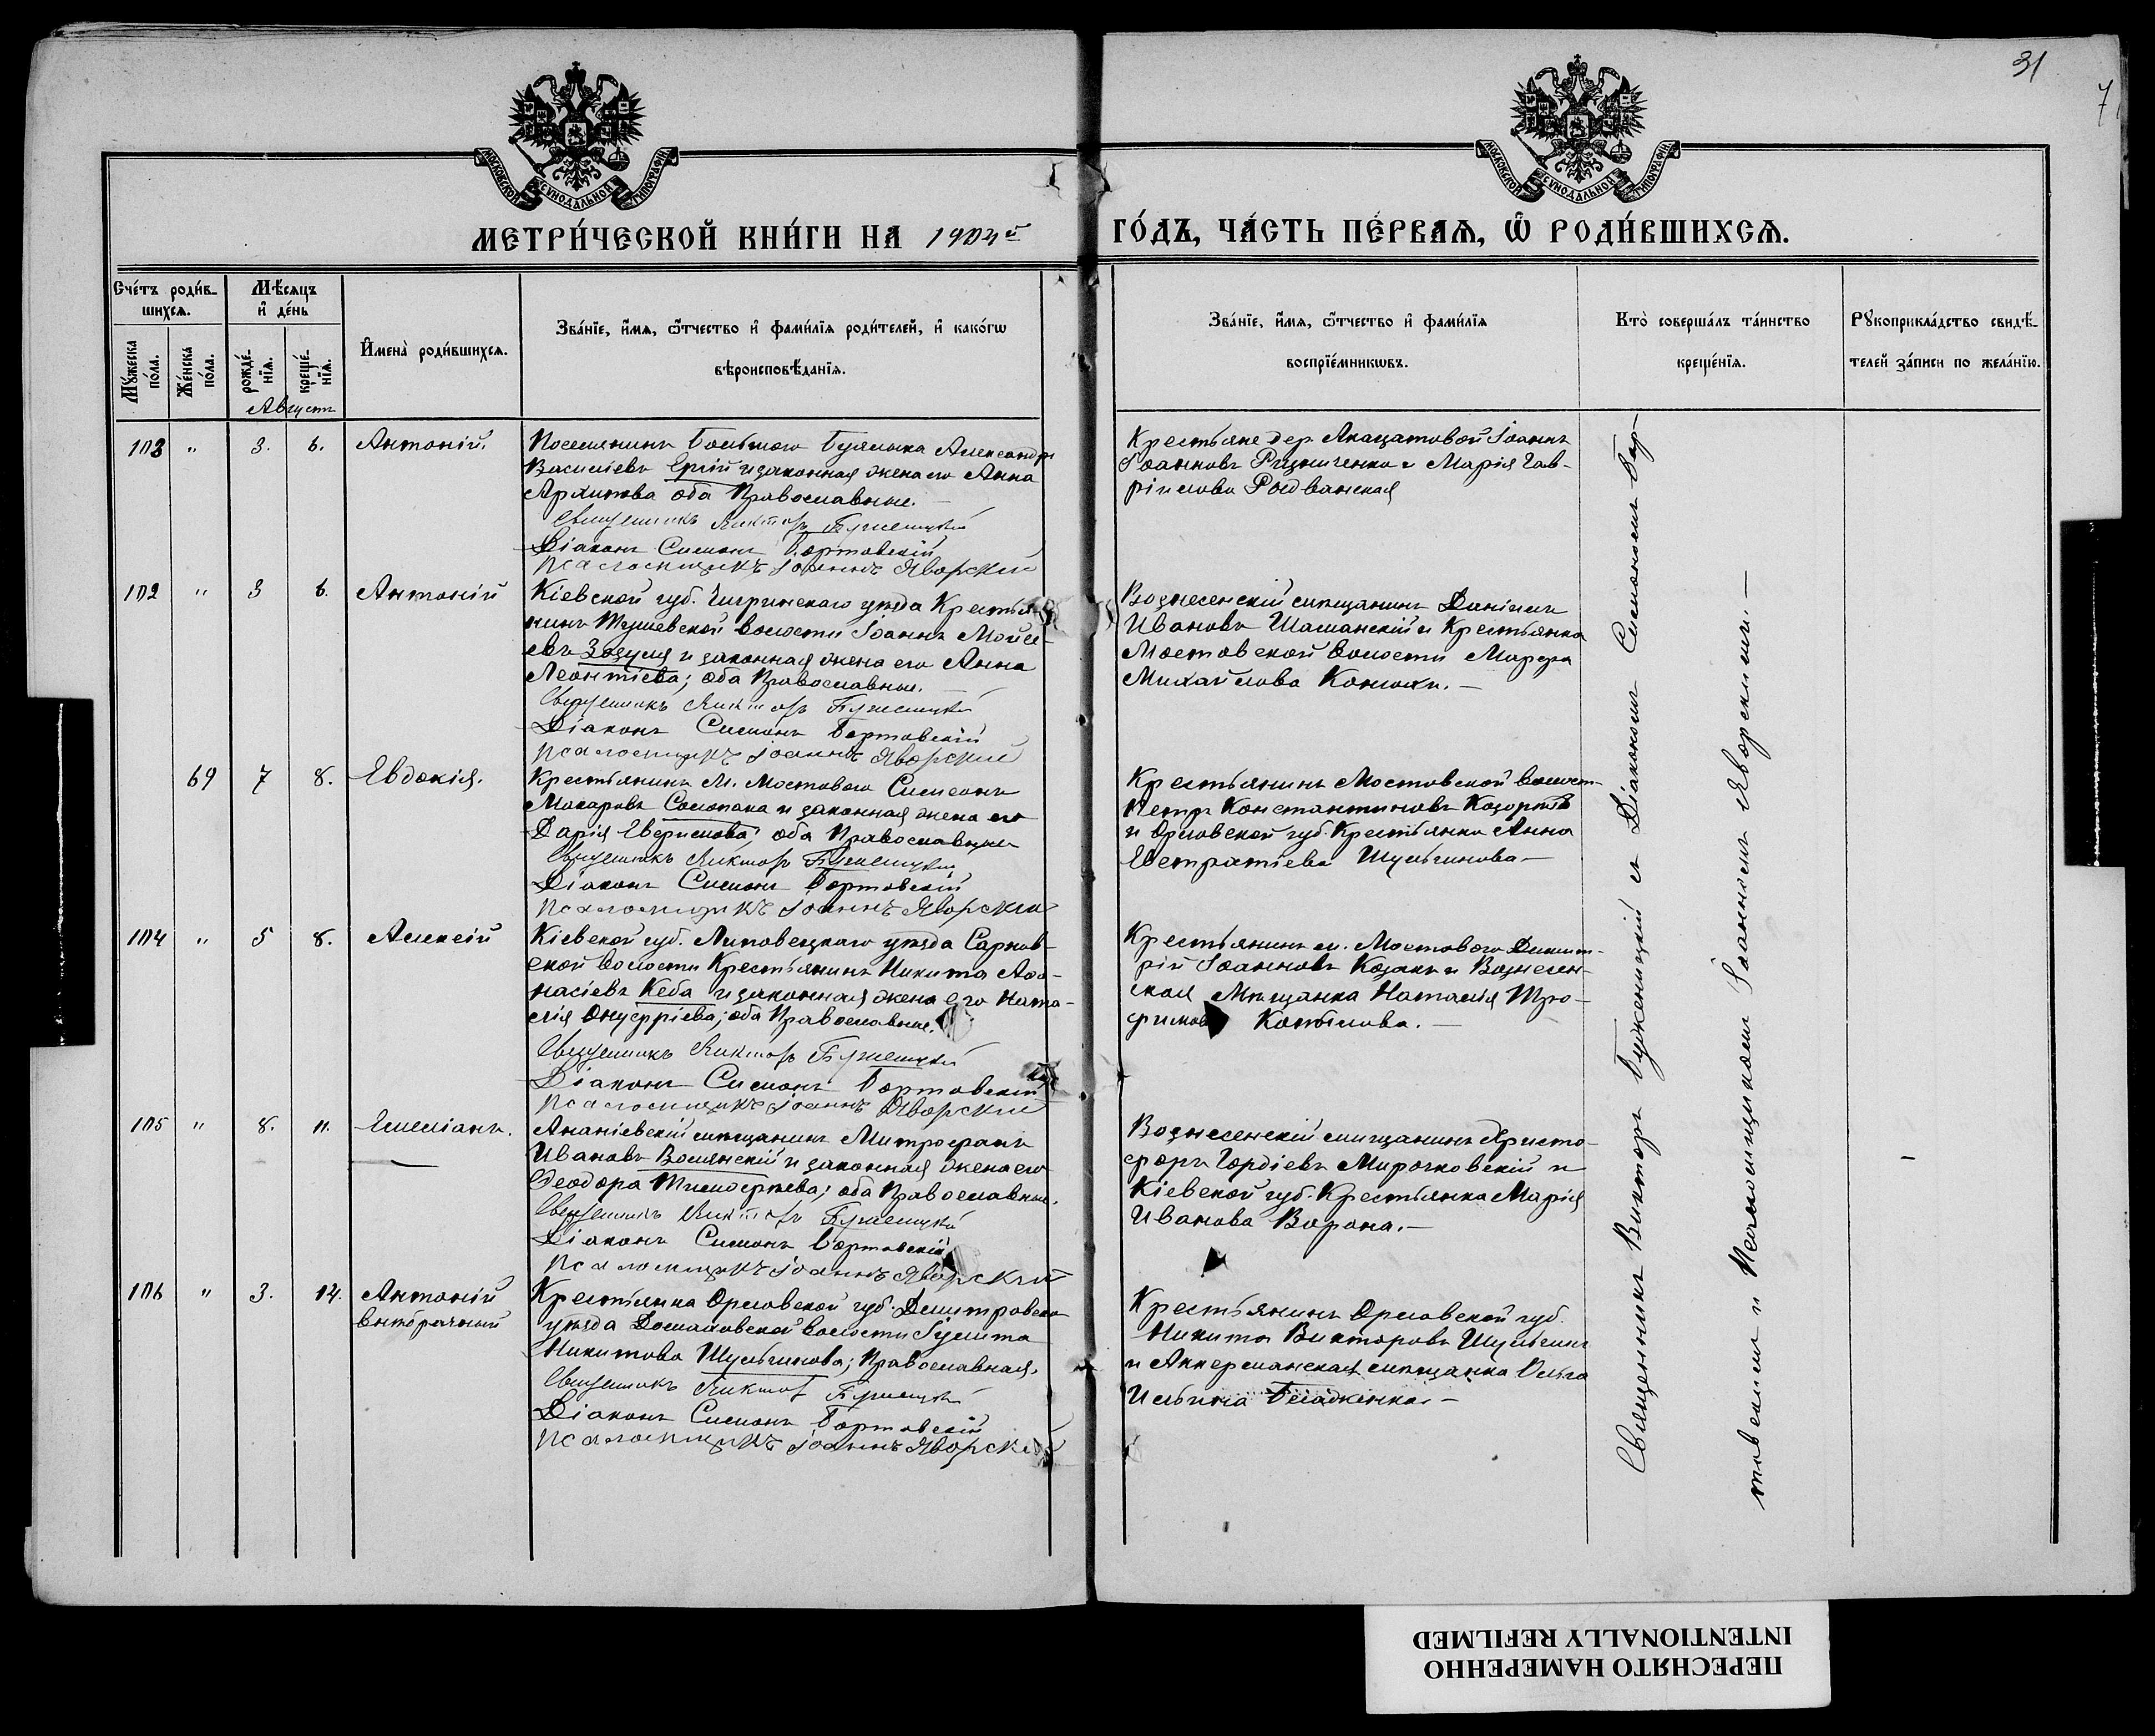 31
7
МОСКОВСКОЙ СѴНОДАЛЬНОЙ ТИПОГРАФІИ
МОСКОВСКОЙ СѴНОДАЛЬНОЙ ТИПОГРАФІИ
МЕТРИ́ЧЕСКОЙ КНИ́ГИ НА 1904й ГО́ДЪ, ЧА́СТЬ ПЕ́РВАѦ, Ѽ РОДИ́ВШИХСѦ.
Сче́тъ роди́в-
шихсѧ.
Мꙋ́жеска по́ла.
Же́нска по́ла.
Мѣ́сѧцъ
и҆ де́нь
рожде́-
нїѧ.
креще́-
нїѧ.
Августъ
И҆мена̀ роди́вшихсѧ.
Зва́нїе, и҆́мѧ, ѻ҆́тчество и҆ фами́лїѧ роди́телей, и҆ како́гѡ
вѣроисповѣ́данїѧ.
Зва́нїе, и҆́мѧ, ѻ҆́тчество и҆ фами́лїѧ
воспрїе́мникѡвъ.
Кто̀ соверша́лъ та́инство
креще́нїѧ.
Рꙋкоприкла́дство свидѣ́-
телей за́писи по жела́нїю.
103 " 3. 6. Антоній.
Поселянинъ Большого Буялыка Александръ
Василіевъ и законная жена его Анна
Архипова оба Православные.
Священникъ Викторъ Бужемицкій
Діаконъ Симонъ Бортовскій
Псаломщикъ Іоаннъ Яворскій
Крестьяне дер. Акацатовой Іоаннъ
Іоанновъ Ризниченко и Марія Гав-
ріилова
102 " 3 6. Антоній
Кіевской губ. Чигринскаго уѣзда Крестья-
нинъ волости Іоаннъ Мойсе-
евъ Зозуля и законная жена его Анна
Леонтіева; оба Православные.
Священникъ Викторъ Бужемицкій
Діаконъ Симонъ Бортовскій
Псаломщикъ Іоаннъ Яворскій
Вознесенскій мѣщанинъ Даніилъ
Ивановъ Шаманскій и Крестьянка
Мостовской волости Марфа
Михайлова
69 7 8. Евдокія.
Крестьянинъ м. Мостового Симеонъ
Макаровъ Солопака и законная жена его
Дарія оба Православные
Священникъ Викторъ Бужемицкій
Діаконъ Симонъ Бортовскій
Псаломщикъ Іоаннъ Яворскій
Крестьянинъ Мостовской волост-
Петръ Константиновъ
и Орловской губ. Крестьянка Анна
Евстратіева Шульгинова —
104 " 5 8. Алексій
Кіевской губ. Липовецкаго уѣзда Сарнов-
ской волости Крестьянинъ Никита Аѳа-
насіевъ Кеба и законная жена его Ната-
лія Онуфріева; оба Православные.
Священникъ Викторъ Бужемицкій
Діаконъ Симонъ Бортовскій
Псаломщикъ Іоаннъ Яворскій
Крестьянинъ м. Мостового Димит-
рій Іоанновъ Козакъ и Вознесен-
ская Мѣщанка Наталія Тро-
фимова Копылова. —
105 " 8. 11. Емеліанъ.
Ананіевскій мѣщанинъ Митрофанъ
Ивановъ Волянскій и законная жена его
Ѳеодора Тимоѳеѣева; оба Православные.
Священникъ Викторъ Бужемицкій
Діаконъ Симонъ Бортовскій
Псаломщикъ Іоаннъ Яворскій
Вознесенскій мѣщанинъ Христо-
форъ Гордіевъ Мирочковскій и
Кіевской губ. Крестьянка Марія
Иванова Ворона. —
106 " 3. 14. Антоній
внѣбрачный
Крестьянка Орловской губ. Дмитровска-
уѣзда Домаховской волости Іулита
Никитова Шульгинова; Православная.
Священникъ Викторъ Бужемицкій
Діаконъ Симонъ Бортовскій
Псаломщикъ Іоаннъ Яворскій
Крестьянинъ Орловской губ.
Никита Викторовъ Шульгинъ
и Аккерманская мѣщанка Ольга
Ильина —
Священникъ Викторъ Бужемицкій съ Діакономъ Симономъ Бор-
товскимъ и Псаломщикомъ Іоанномъ Яворскимъ. —
ПЕРЕСНЯТО НАМЕРЕННО
INTENTIONALLY REFILMED